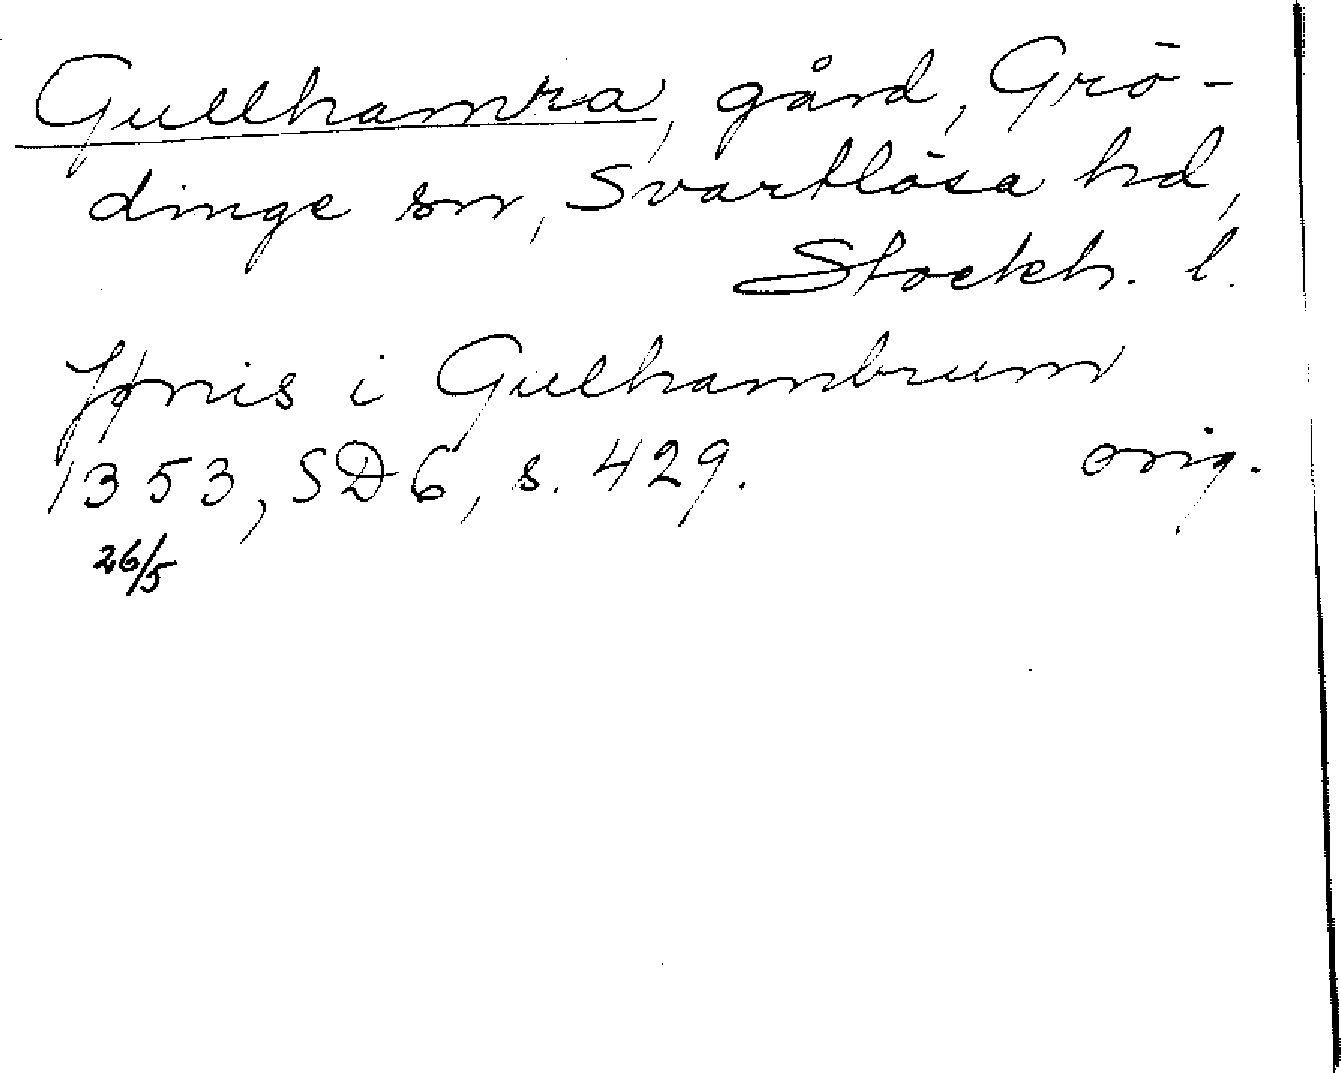 Gullhamra, gård, Grö-
dinge sn, Svartlösa hd,
Stockh. l.
i Gulhambrum
1353, SD 6, s. 429. orig.
26/5